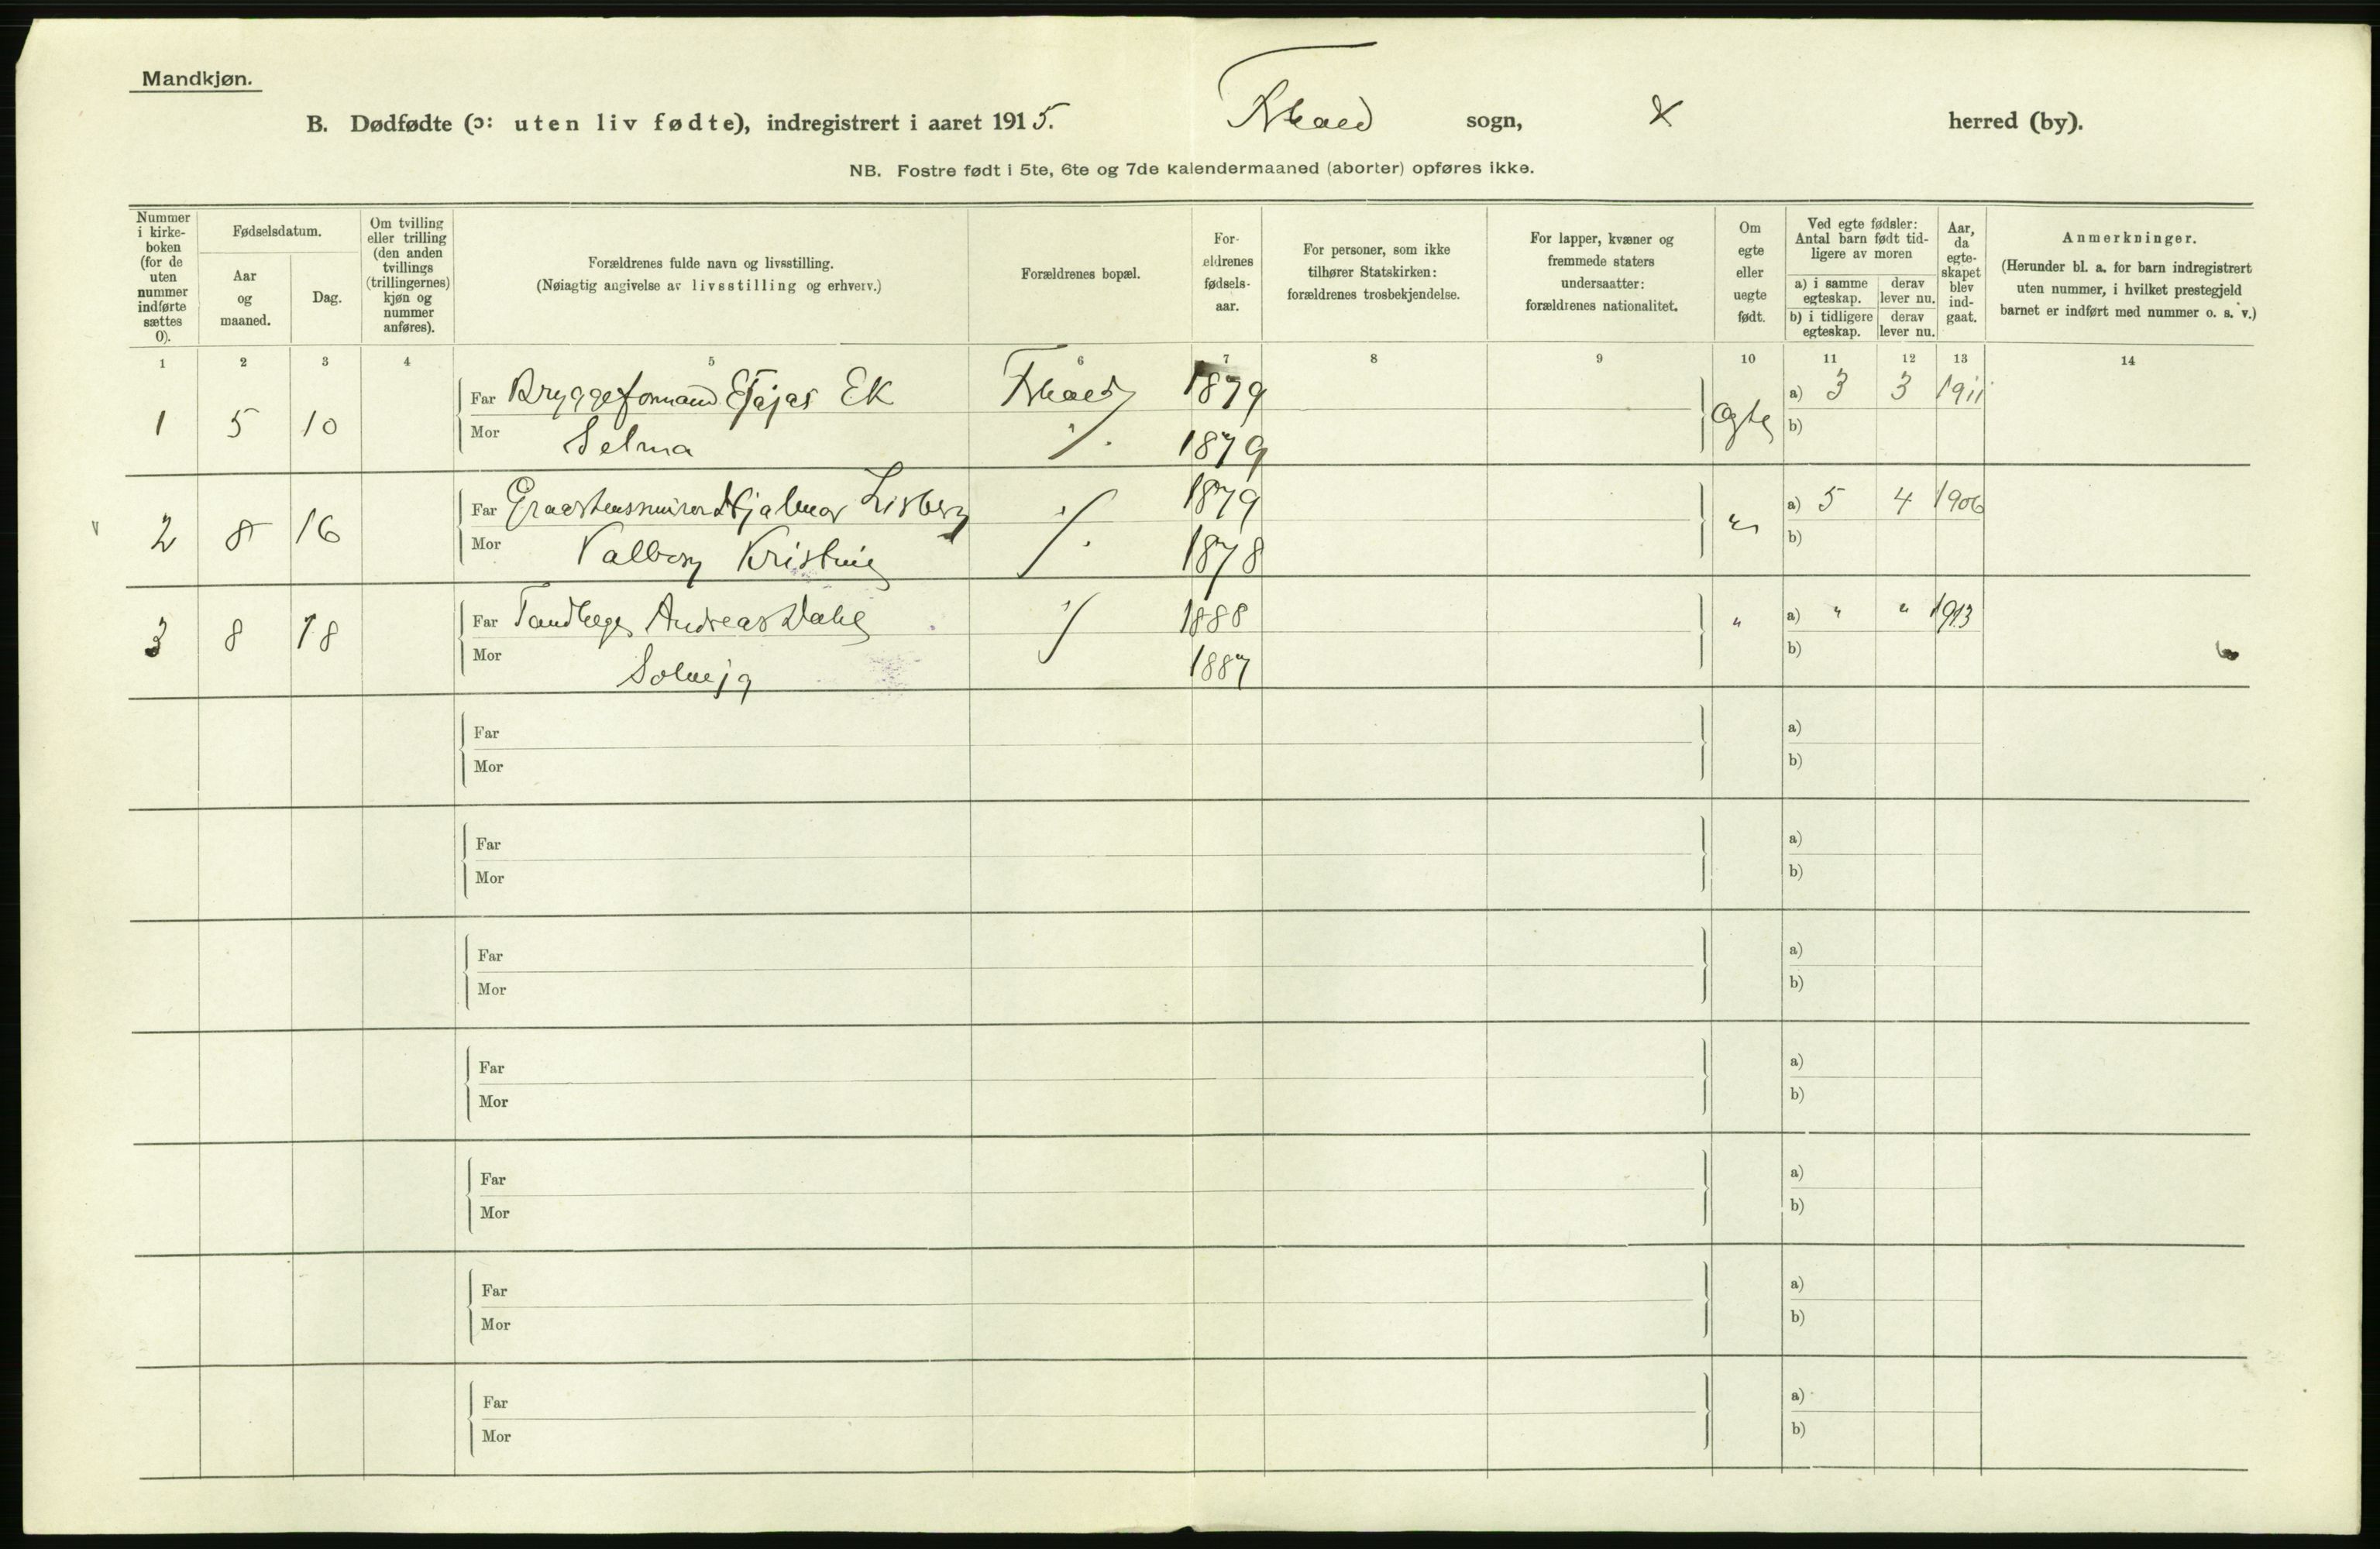 Mandkjøn.
B. Dødfødte (ɔ: uten liv fødte), indregistrert i aaret 1915. sogn, herred (by).
NB. Fostre født i 5te, 6te og 7de kalendermaaned (aborter) opføres ikke.
Nummer i kirke- boken (for de uten nummer indførte sættes 0).
Fødselsdatum.
Aar og maaned.
Dag.
Om tvilling eller trilling (den anden tvillings (trillingernes) kjøn og nummer anføres).
Forældrenes fulde navn og livsstilling.
(Nøiagtig angivelse av livsstilling og erhverv.)
Forældrenes bopæl.
For- ældrenes fødsels- aar.
For personer, som ikke tilhører Statskirken: forældrenes trosbekjendelse.
For lapper, kvæner og fremmede staters undersaatter: forældrenes nationalitet.
Om egte eller uegte født.
Ved egte fødsler: Antal barn født tid- ligere av moren
a) i samme egteskap. derav lever nu.
b) i tidligere egteskap. derav lever nu.
Aar, da egte- skapet blev ind- gaat.
Anmerkninger.
(Herunder bl. a. for barn indregistrert uten nummer, i hvilket prestegjeld barnet er indført med nummer o. s. v.)
1 2 3 4 5 6 7 8 9 10 11 12 13 14
1 5 10 Far Bryggeformand Ek 1879 Egte a) 3 3 1911
Mor Selma 1879 b)
2 8 16 Far Hjalmar Lisberg 1879 " a) 5 4 1906
Mor Valborg Kristine 1878 b)
3 8 18 Far Tandlæge Andreas Dahl 1888 " a) " " 1913
Mor Solveig 1887 b)
Far a)
Mor b)
Far a)
Mor b)
Far a)
Mor b)
Far a)
Mor b)
Far a)
Mor b)
Far a)
Mor b)
Far a)
Mor b)